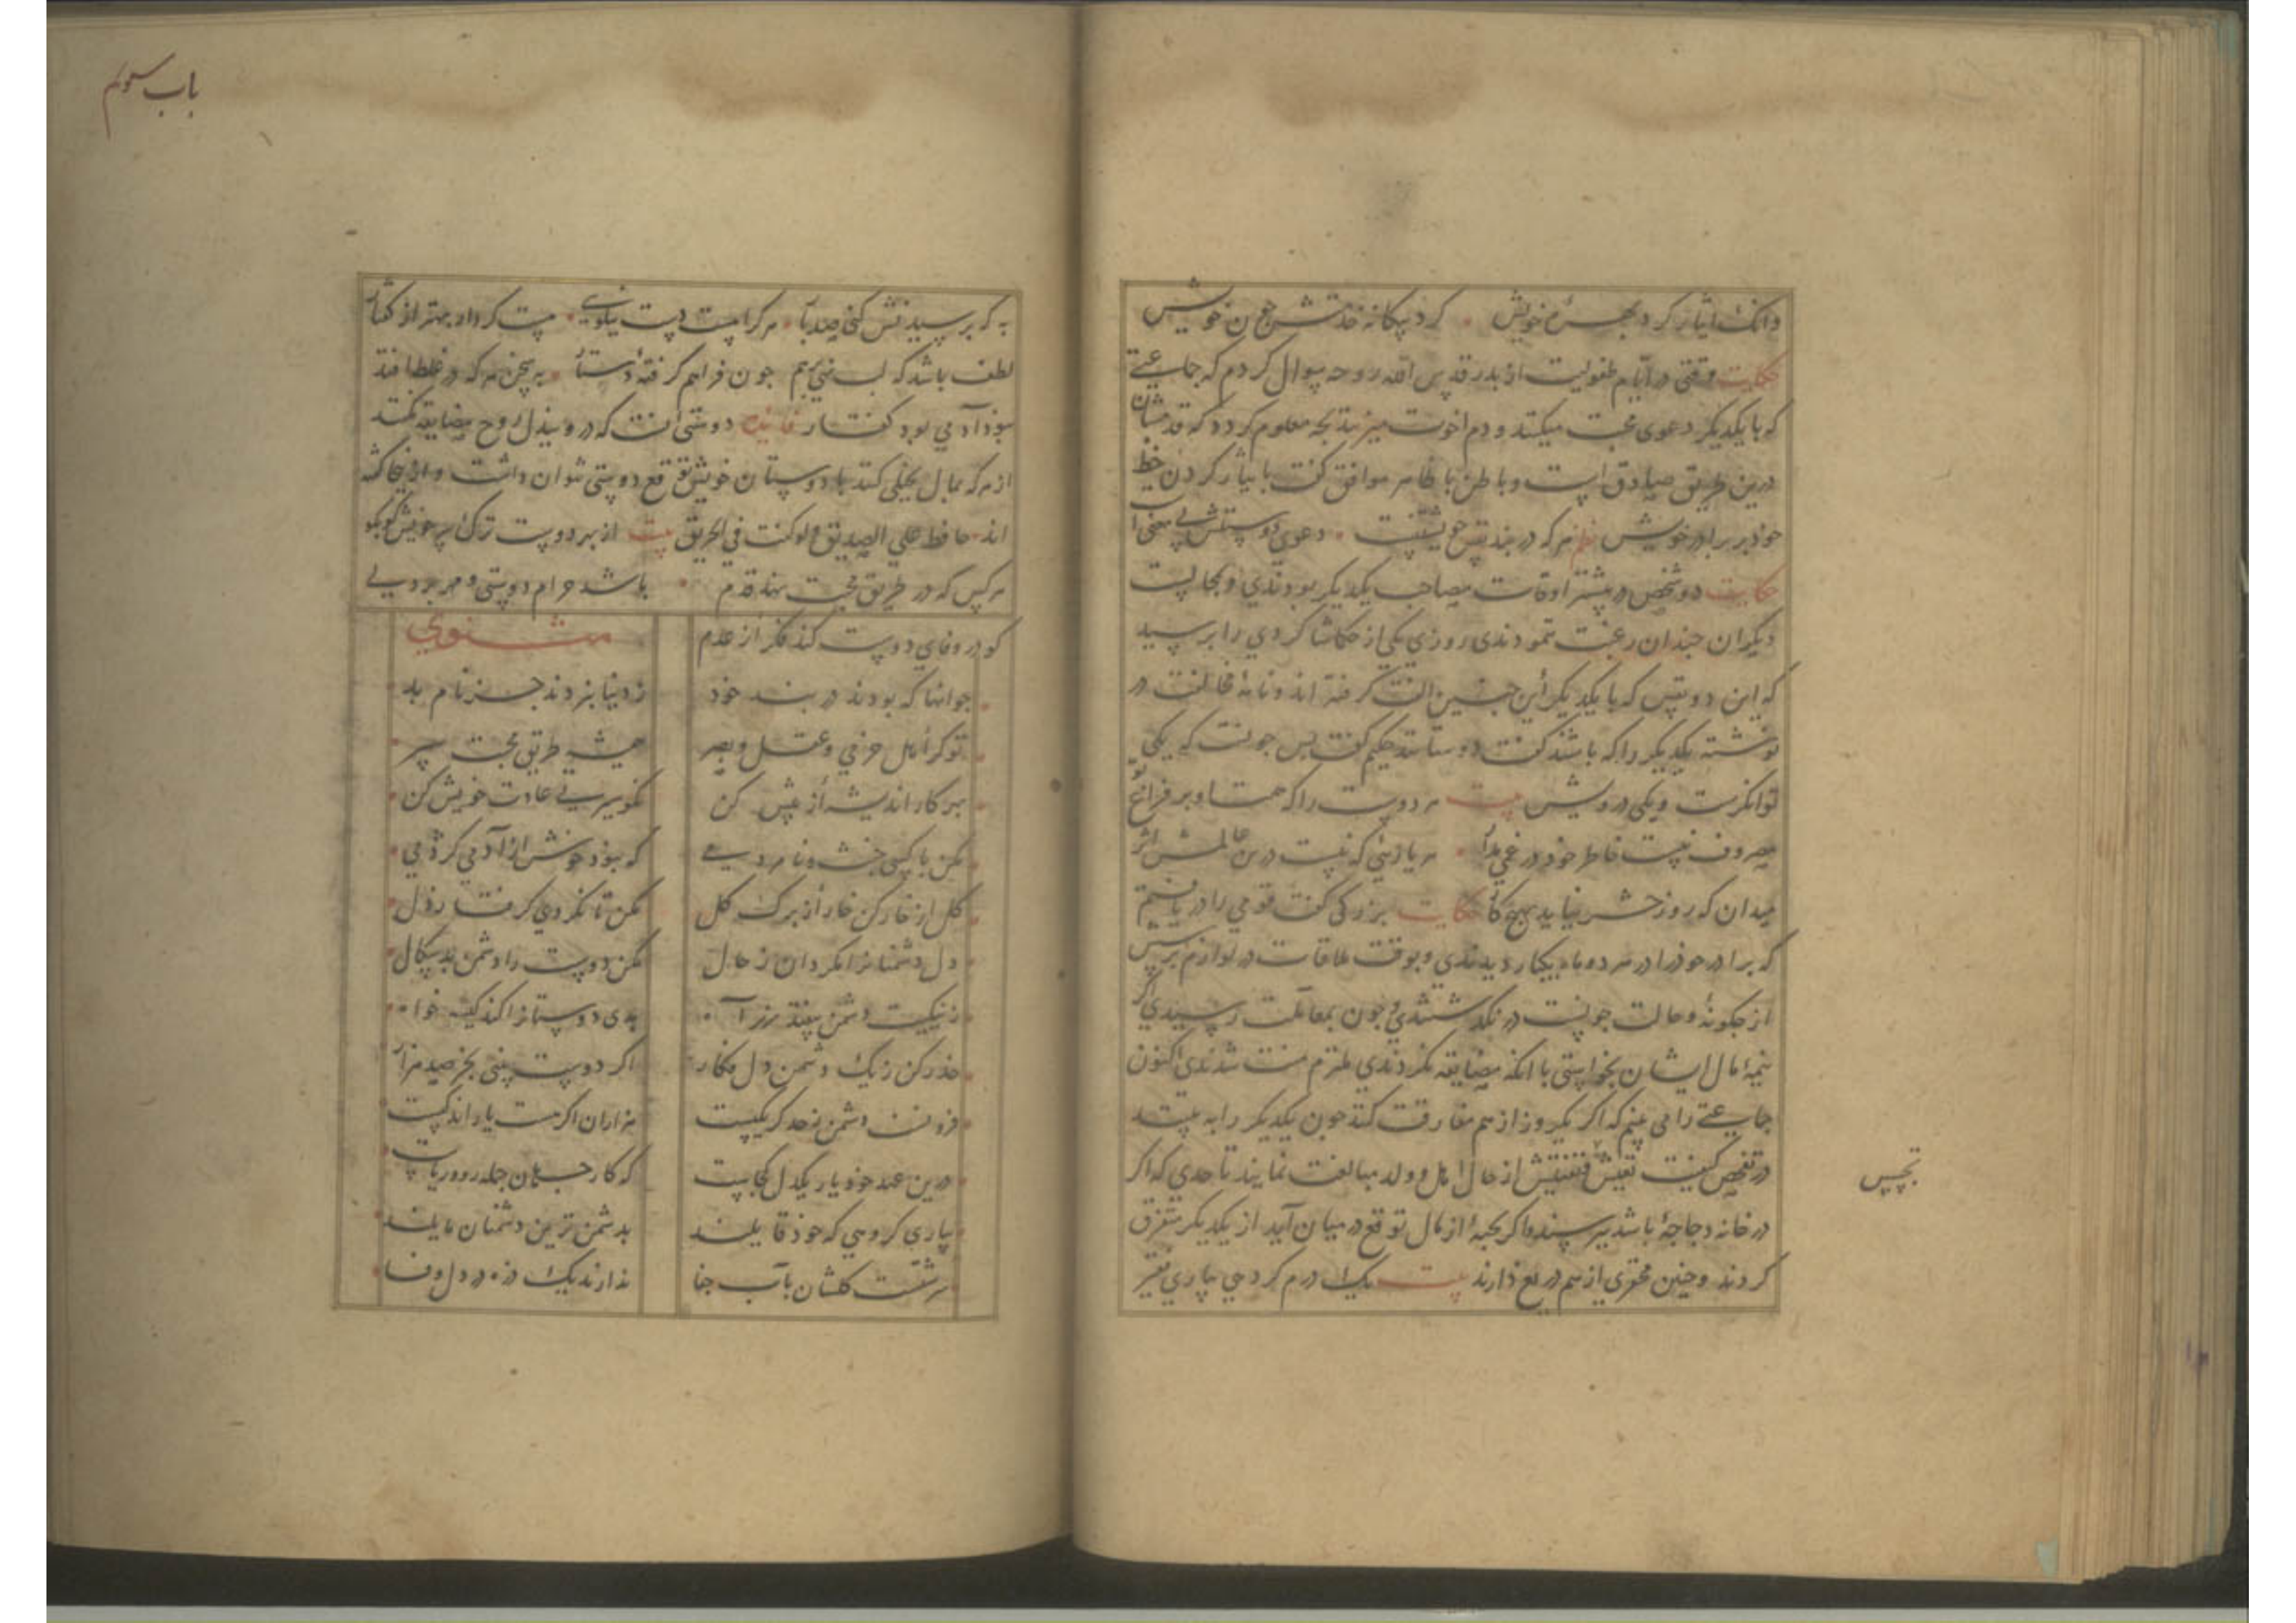 وانک ایثار کرد بهره خویش کرد بیکانه خدمتش چون خویش
حکایت وقتی در ایام طفولیت از بدر قدس الله روحه سوال کردم که جماعتی
که با یکدیکر دعوی محبت میکنند و دم اخوت میزنند بچه معلوم کردد که قدمشان
درین طریق صادق است و باطن با ظاهر موافق کفت بایثار کردن حظ
خود بر برادر خویش نظم هرکه در بند نفس خویشتنست دعوی دوستیش بی معنی
حکایت دو شخص در بیشتر اوقات مصاحب یکدیکر بودندی و بمجالست
دیکران جندان رغبت ننمودندی روزی یکی از حکما شاکردی را برسید
که این دو کس که با یکدیکر این جنین الفت کرفته اند و نامه مخالفت در
نوشته یکدیکر را که باشند کفت دوستانند حکیم کفت بس جونست که یکی
توانکرست و یکی درویش بیت هر دوست را که همت او بر فراغ تو
مصروف نیست خاطر خود در غمی مدار هر یار نیی که نیست درین عالمش اثر
میدان که روز حشر نیاید بهیچ کار حکایت بزرکی کفت قومی را دریافتم
که برادر خود را در هر دو ماه یکبار دیدندی و بوقت ملاقات در لوازم برسش
از جکونه و حالت جونست درنکذشتندی و جون بمقالت رسیدی اکر
نیمه مال ایشان بخواستی با آنکه مضایقه نکردندی ملتزم منت شدندی اکنون
جماعتی را می بینم که اکر یکروز از هم مفارقت کنند جون یکدیکر را به بینند
در تفحص کیفیت تعیش و تفتیش از حال اهل و ولد مبالغت نمایند تا حدی که اکر
در خانه دجاجه باشد ببرسند و اکر بحبه از مال توقع در میان آید از یکدیکر متفرق
کردند و جنین محقری از هم دریغ دارند بیت یک درم کر دهی بیاری فقیر
تجسس
باب سوم
به که برسیدنش کنی صد بار هر کرا هست دست نیکویی هست کردار بهتر از کفتار
لطف باشد که لب نهی بر هم جون فراهم کرفته دستار به سخن هر که در غلط افتد
نبود آدمی بود کفتار فایده دوستی آنست که درو ببذل روح مضایقه نکنند
از هر که بمال بخیلی کند با دوستان خویش توقع دوستی نتوان داشت و ازینجا کفته
اند حافظ علی الصدیق و لو کنت فی الحریق بیت از بهر دوست ترک سر خویش کو بکو
هر کس که در طریق محبت نهد قدم باشد حرام دوستی و مهر بر دلی
کو در وفای دوست کند فکر از عدم
مثنوی
جوانها که بودند در بند خود ز دنیا نبردند جز نام بد
توکر اهل حزمی و عقل و بصر همیشه طریق محبت سپر
بهر کار اندیشه از بیش کن نکو سیرتی عادت خویش کن
مکن با کسی خشم و نامردمی که نبود خوش از آدمی کژدمی
کل از خار کن خار از برک کل مکن تا نکردی کرفتار ذل
دل دشمنانرا مکردان ز حال مکن دوست را دشمن بدسکال
ز نیکیت دشمن ببندد ز راه بدی دوستانرا کند کینه خواه
حذر کن ز یک دشمن دل فکار اکر دوست بینی بخر صد هزار
فزونست دشمن ز حد کر یکیست هزاران اکر هست یار اندکیست
درین عهد خود یار یکدل کجاست که کار جهان جمله روو ریاست
بیاری کروهی که خود قایلند بدشمن ترین دشمنان مایلند
سرشتست کلشان بآب جفا ندارند یک ذره در دل وفا